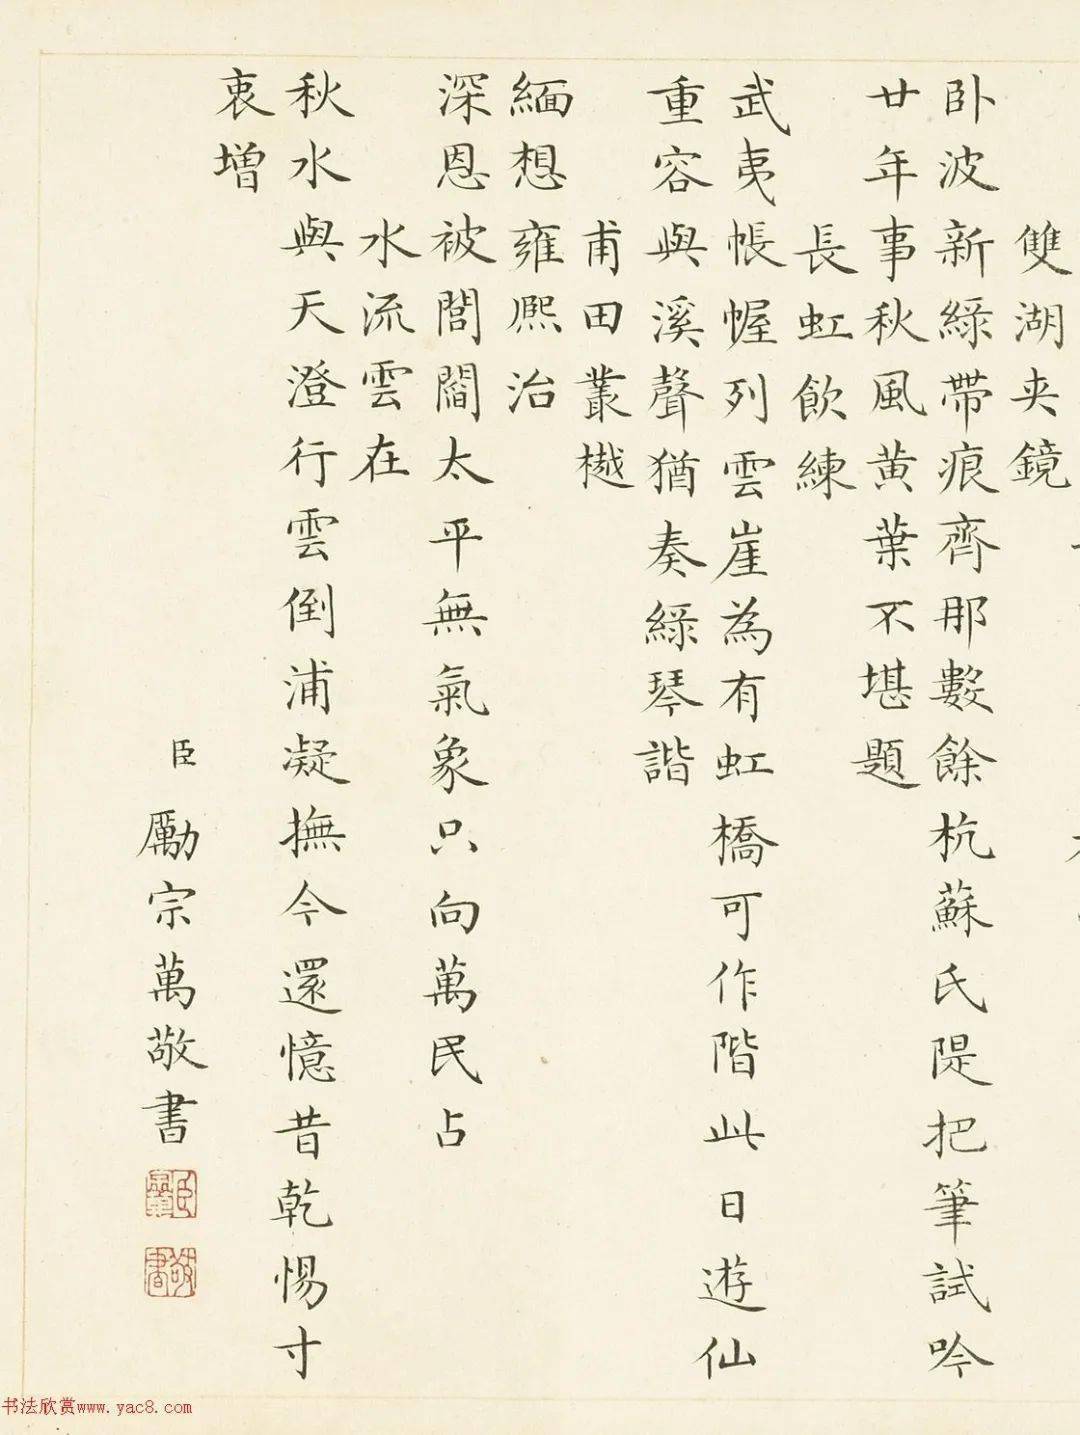 雙湖夾鏡
卧波新綠帶痕齊那數餘杭蘇氏隄把筆試吟
廿年事秋風黃葉不堪題
長虹飲練
武夷帳幄列雲崖為有虹橋可作階此日遊仙
重容與溪聲猶奏綠琴諧
甫田叢樾
緬想雍熈治
深恩被閭閻太平無氣象只向萬民占
水流雲在
秋水與天澄行雲倒浦凝撫今還憶昔乾惕寸
衷增
臣勵宗萬敬書
书法欣赏www.yac8.com